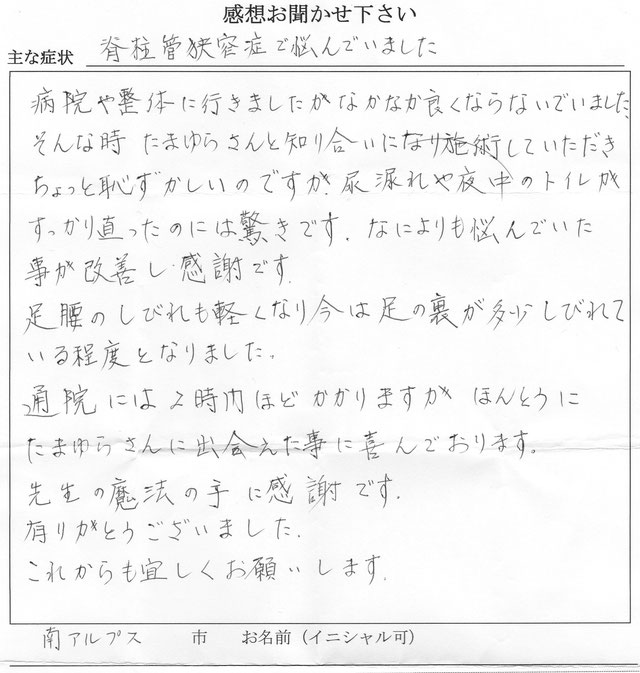 感想お聞かせ下さい
主な症状 脊柱管狭窄症で悩んでいました
病院や整体に行きましたがなかなか良くならないでいました
そんな時 たまゆらさんと知り合いになり施術していただき
ちょっと恥ずかしいのですが、尿漏れや夜中のトイレが
すっかり直ったのには驚きです。なによりも悩んでいた
事が改善し感謝です。
足腰のしびれも軽くなり今は足の裏が多少しびれて
いる程度となりました。
通院には2時間ほどかかりますが ほんとうに
たまゆらさんに出会えた事に喜んでおります。
先生の魔法の手に感謝です。
有りがとうございました。
これからも宜しくお願いします。
南アルプス 市 お名前（イニシャル可）